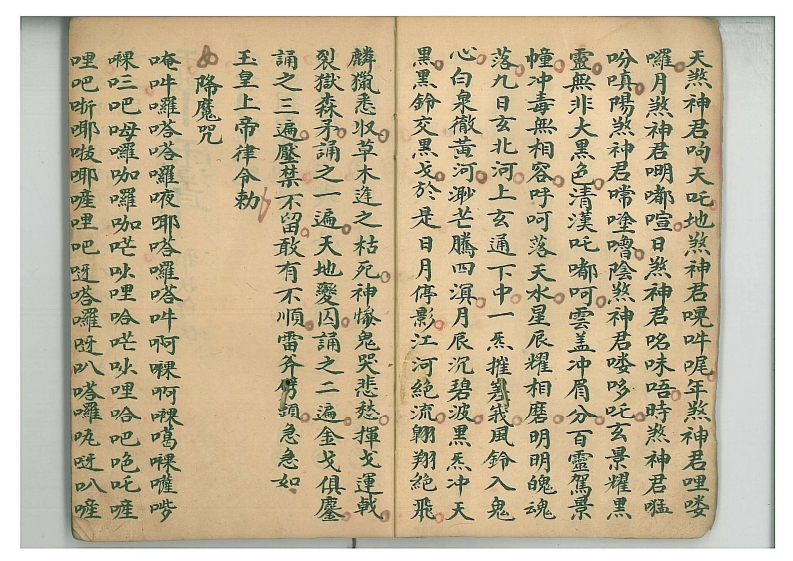 天煞神君呴天吒地煞神君唲吽喔年煞神君哩喽
囉月煞神君明嘟喧日煞神君咯味唔時煞神君
吩嗔陽煞神君嘗塗嚕陰煞神君喽哆吒玄景耀黑
靈無非大黑色清漢吒嘟呵雲盖冲眉分百靈駕景
幢冲毒無相容呼呵落天水星辰耀相磨明明魄魂
落九日玄北河上玄通下中一炁摧峩風鈴入鬼
心白泉徹黃河渺芒騰四溟月辰沉碧波黑炁冲天
黑黑鈴交黑戈於是日月停影江河絶流翱翔絶飛
麟獵悉収草木逢之枯死神惨鬼哭悲愁揮戈運戟
裂獄森矛誦之一遍天地變囚誦之二遍金戈俱鏖
誦之三遍壓禁不留敢有不順雷斧劈頭急急如
玉皇上帝律令勅
降魔咒
唵吽囉嗒嗒囉唊耶嗒囉嗒吽啊啋啊啋噶啋嚾
啋三吧呣囉咖囉咖芒吙哩哈芒吙哩哈吧唣吒嗺
哩吧哳耶呶耶嗺哩吧呀嗒囉呀叭嗒囉呀叭嗺